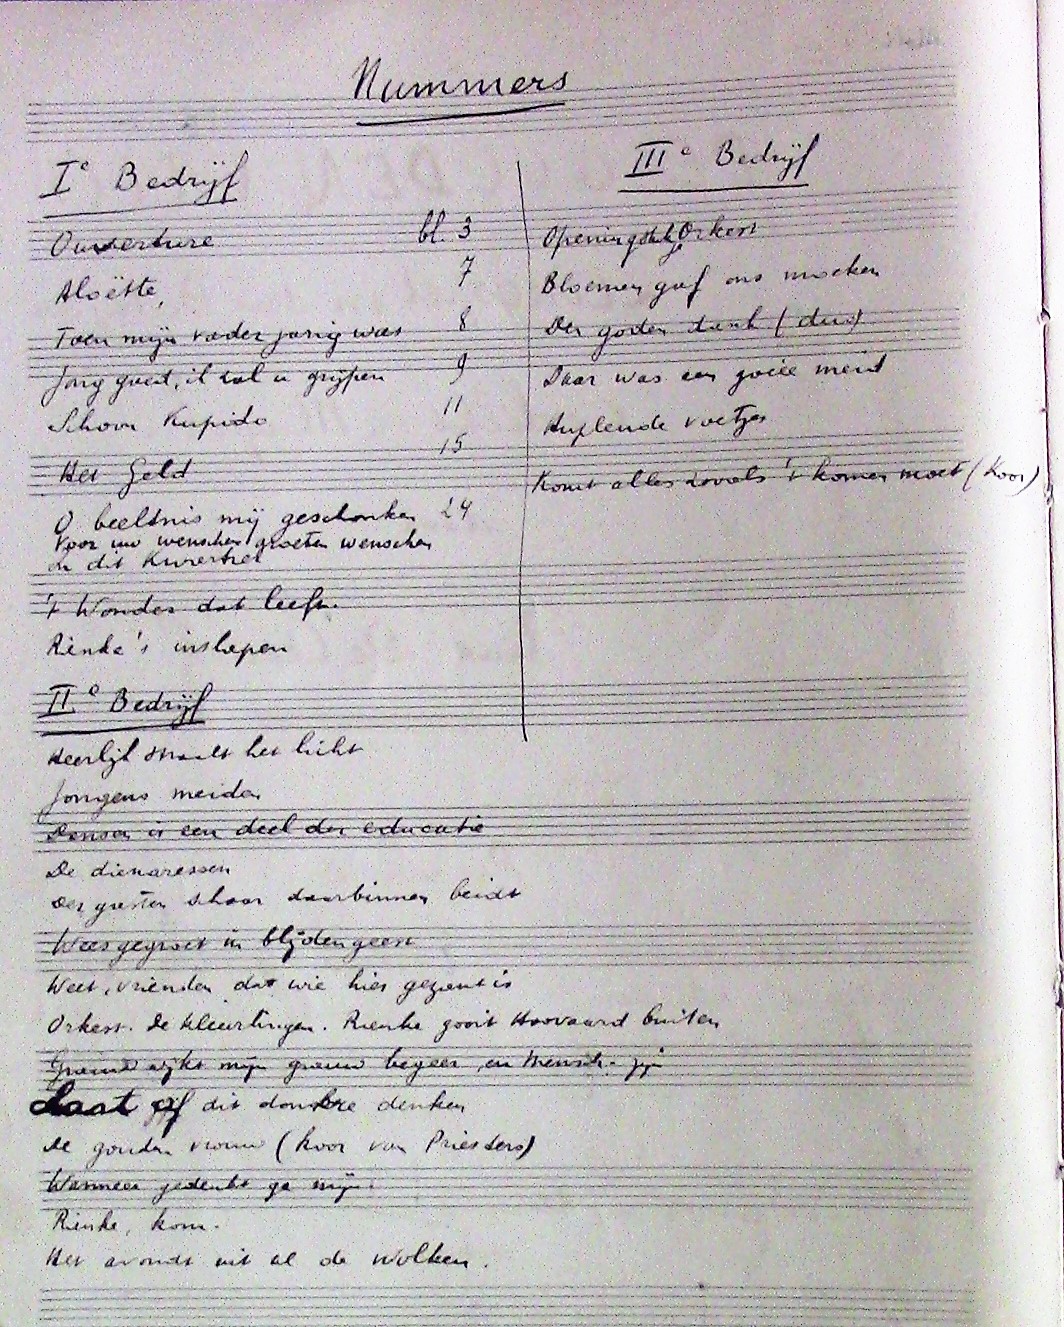 Nummers
Ie Bedrijf
Ouverture bl. 3
Aloëtte, 7
Toen mijn vader jarig was 8
Jong goed, ik zal u grijpen 9
Schoon Kupido 11
Het Geld 15
O beeltnis mij geschonken 24
Voor uw wenschen groeten wenschen
en dit
't Wonder dat leeft.
Rienke's inslapen
IIe Bedrijf
Heerlijk straalt het licht
Jongens meiden
Dansen is een deel der educatie
De dienaressen
Der gasten schaar daarbinnen beidt
Wees gegroet in blijden geest
Weet, vrienden dat wie hier gezeut is
Orkest. De kleerlingen. Rienke gooit Hoovaard buiten
wijkt mijn grauw begeer, en Mensch-zijn
Laat af dit donkre denken
De gouden vrouw (koor van Priesters)
Wanneer gedenkt ge mijn.
Rienke, kom.
Het avondt uit al de wolken.
IIIe Bedrijf
Openingstuk Orkest
Bloemen gaf ons moeken
Der goden dank (duo)
Daar was een goeie meid
Huplende voetjes
Komt alles zooals 't komen moet (Koor)